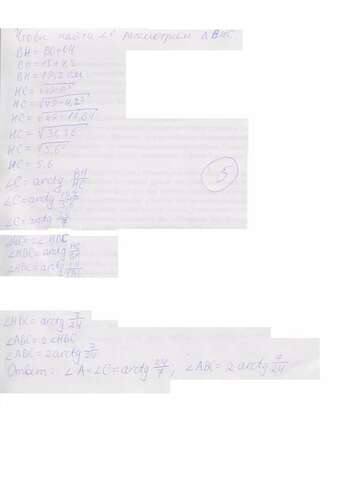 Чтобы найти ∠C рассмотрим △ВНС
BH = BO+OH
BH = 15+4,2
BH = 19,2 см.
HC = 
HC = 
HC = 
HC = √31,36
HC = √5,6²
HC = 5,6
∠C = arctg BH/HC
∠C = arctg 19,2/5,6
∠C = arctg 24/7
5
∠HBC
∠HBC = arctg HC/BH
∠HBC = arctg
∠HBC = arctg 7/24
∠ABC = 2∠HBC
∠ABC = 2arctg 7/24
Ответ: ∠A=∠C=arctg 24/7; ∠ABC = 2 arctg 7/24.